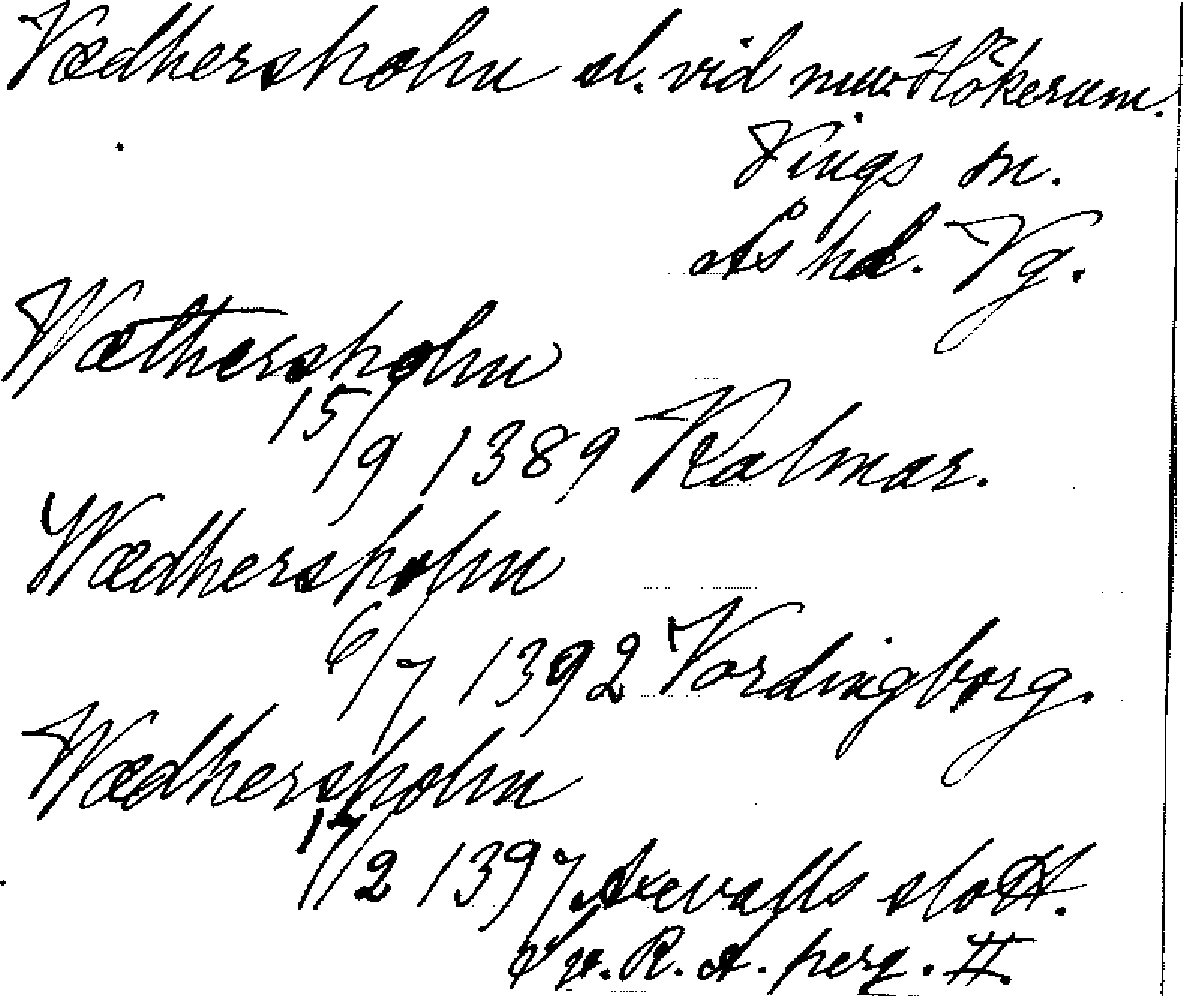 Vædhersholm sl. vid nuv. Hökerum.
Vings sn.
Ås hd. Vg.
Wæthersholm
15/9 1389 Kalmar.
Wædhersholm
6/7 1392 Vordingborg.
Wædhersholm
17/2 1397 Axevalls slott.
Sv. R. A. perg. II.